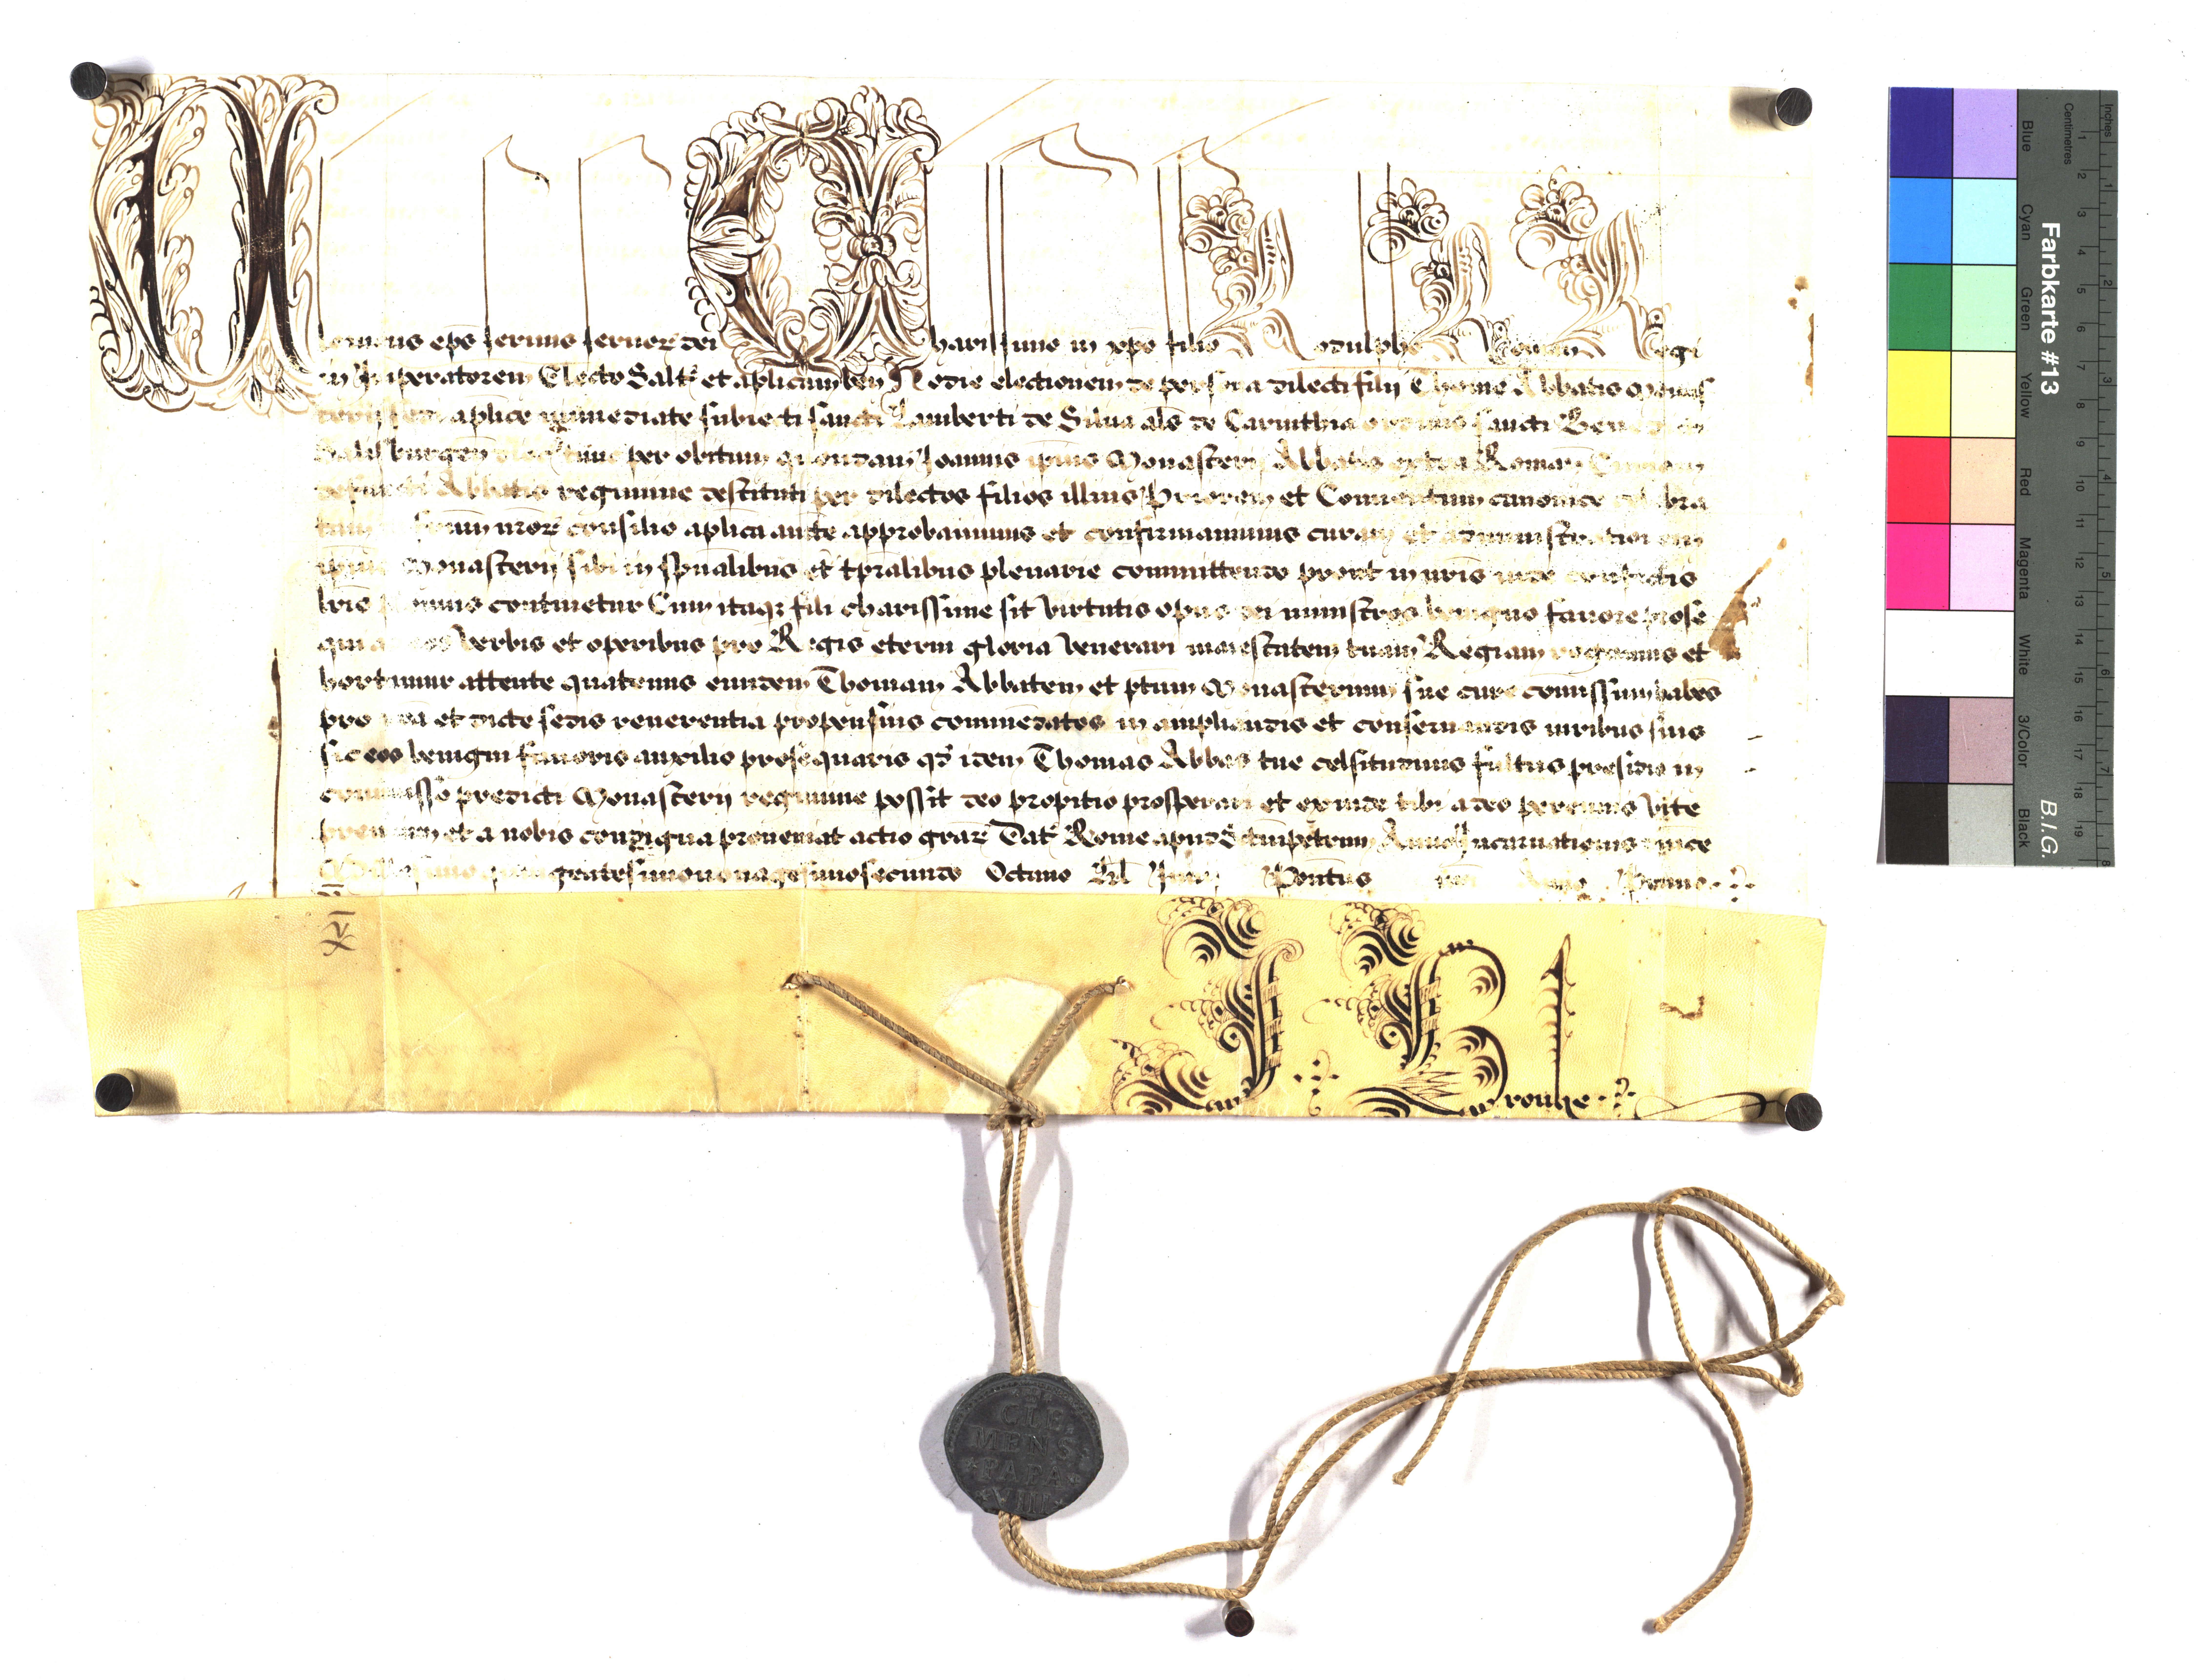 eps seruus seruor dei Charissimo in xpo filio Rodulpho Regi
in Imperatorem Electo Saltm et aplicam ben Hodie electionem de persona dilecti filii Thome Abbatis Monas
terii sedi aplice immediate subiecti sancti Lamberti de Silua als de Carinthia ordinis sancti
per obitum quondam Joannis ipius Monasterij Abbatis extra Roman Curiam
defuncti Abbatis regimine destituti per dilectos filios illius Priorem et Conuentum canonice celebra
tam consilio aplica aucte approbauimus et confirmauimus curam et administrationem
ipius Monasterij sibi in spualibus et tpralibus plenarie committendo prout in nris inde confectis
lris continetur Cum itaqz fili charissime sit virtutis opus dei ministros benigno fauore prose
qui verbis et operibus pro Regis eterni gloria venerari maiestatem tuam Regiam rogamus et
hortamur attente quatenus eundem Thomam Abbatem et ptum Monasterium sue cure comissum habes
pro nra et dicte sedis reuerentia propensius commedatos in ampliandis et conseruandis iuribus suis
sic eos benigni fauoris auxilio prosequaris qd idem Thomas Abbas tue celsitudinis fultus presidio in
comisso predicti Monasterij regimine possit deo propitio prosperari et exinde tibi a deo perennis vite
premium et a nobis condigna proueniat actio grar Dat Rome apud S tumpetrum Anno Incarnationis dnice
Millesimo quingentesimononagesimosecundo Octauo Kl Pontus
rouhe
CLE
MENS
PAPA
VIII
Farbkarte #13
B.I.G.
Blue
Cyan
Green
Yellow
Red
Magenta
White
3/Color
Black
Inches
Centimetres
1 2 3 4 5 6 7 8 9 10 11 12 13 14 15 16 17 18 19
1 2 3 4 5 6 7 8